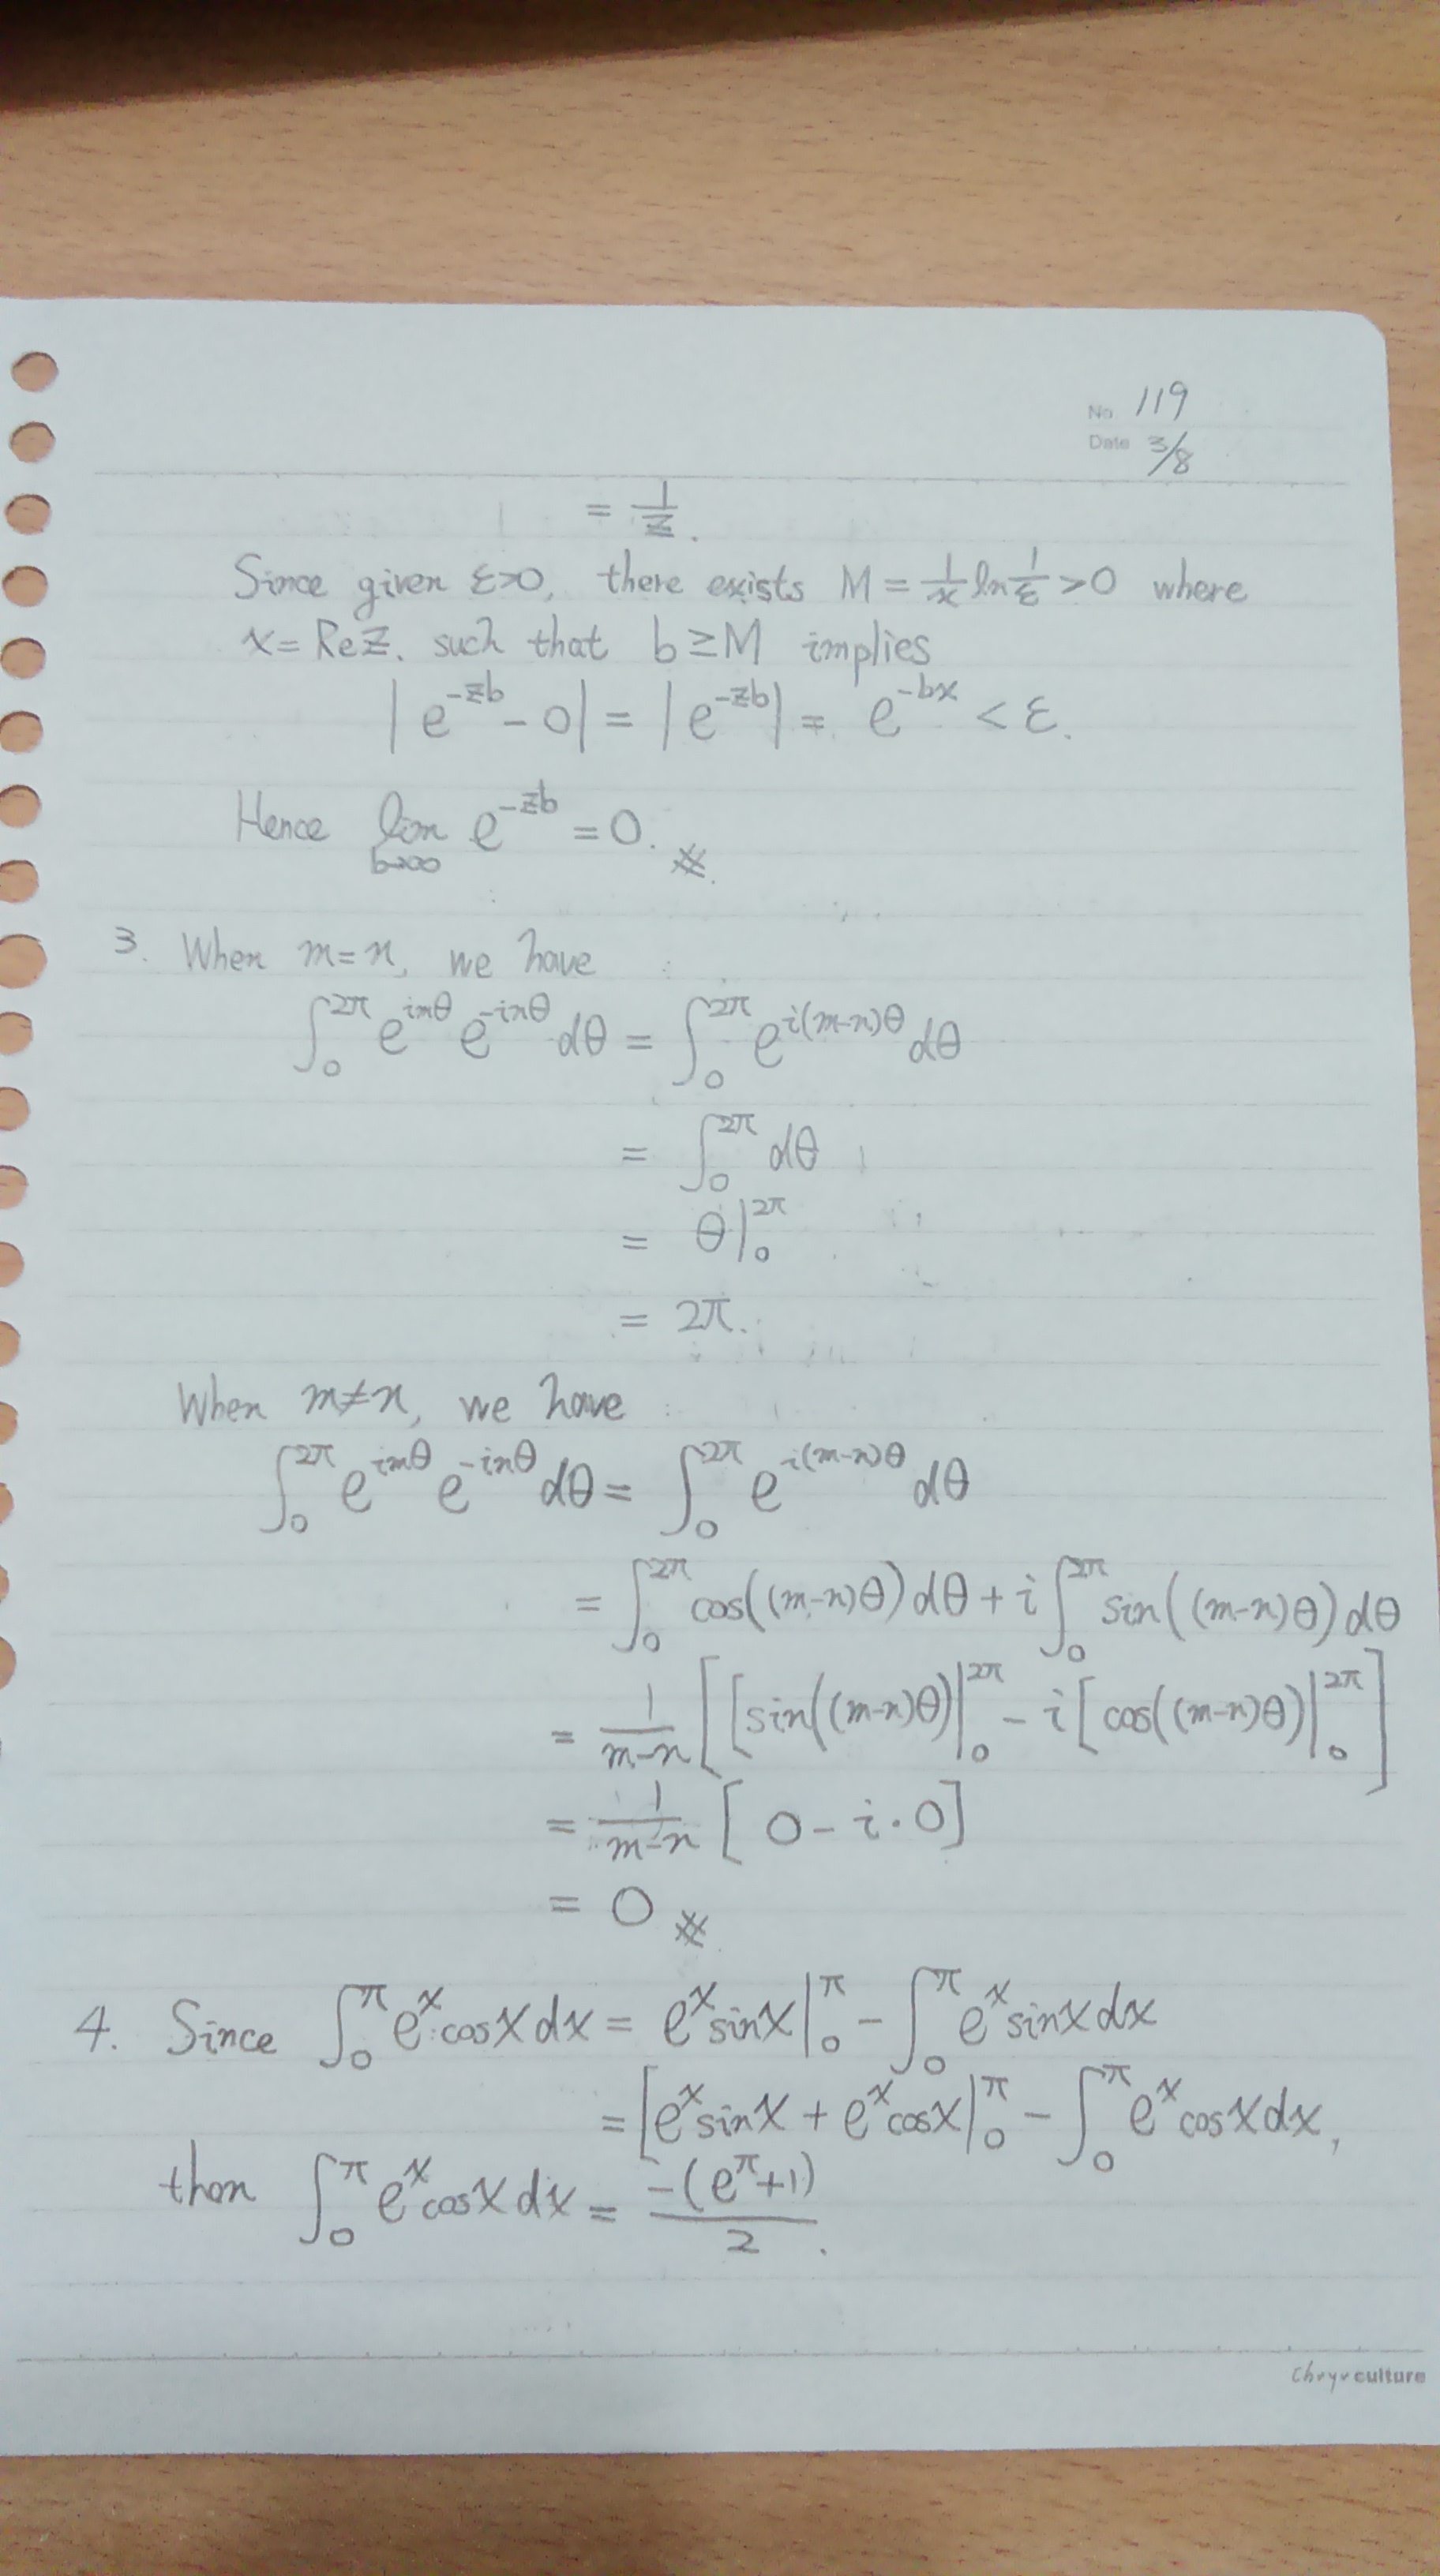 No. 119
Date 3/8
= 1/z.
Since given ε>0, there exists M = 1/x ln 1/ε > 0 where
x = Re z. such that b ≥ M implies
| e^{-zb} - 0 | = | e^{-zb} | = e^{-bx} < ε.
Hence lim_{b→∞} e^{-zb} = 0. ※.
3. When m=n, we have
∫_0^{2π} e^{imθ} e^{-inθ} dθ = ∫_0^{2π} e^{i(m-n)θ} dθ
= ∫_0^{2π} dθ
= θ |_0^{2π}
= 2π.
When m≠n, we have
∫_0^{2π} e^{imθ} e^{-inθ} dθ = ∫_0^{2π} e^{i(m-n)θ} dθ
= ∫_0^{2π} cos((m-n)θ) dθ + i ∫_0^{2π} sin((m-n)θ) dθ
= 1/(m-n) [ [ sin((m-n)θ) |_0^{2π} - i [ cos((m-n)θ) |_0^{2π} ]
= 1/(m-n) [ 0 - i · 0 ]
= 0 ※
4. Since ∫_0^π e^x cos x dx = e^x sin x |_0^π - ∫_0^π e^x sin x dx
= [ e^x sin x + e^x cos x |_0^π - ∫_0^π e^x cos x dx,
then ∫_0^π e^x cos x dx = -(e^π+1)/2.
Chryr culture